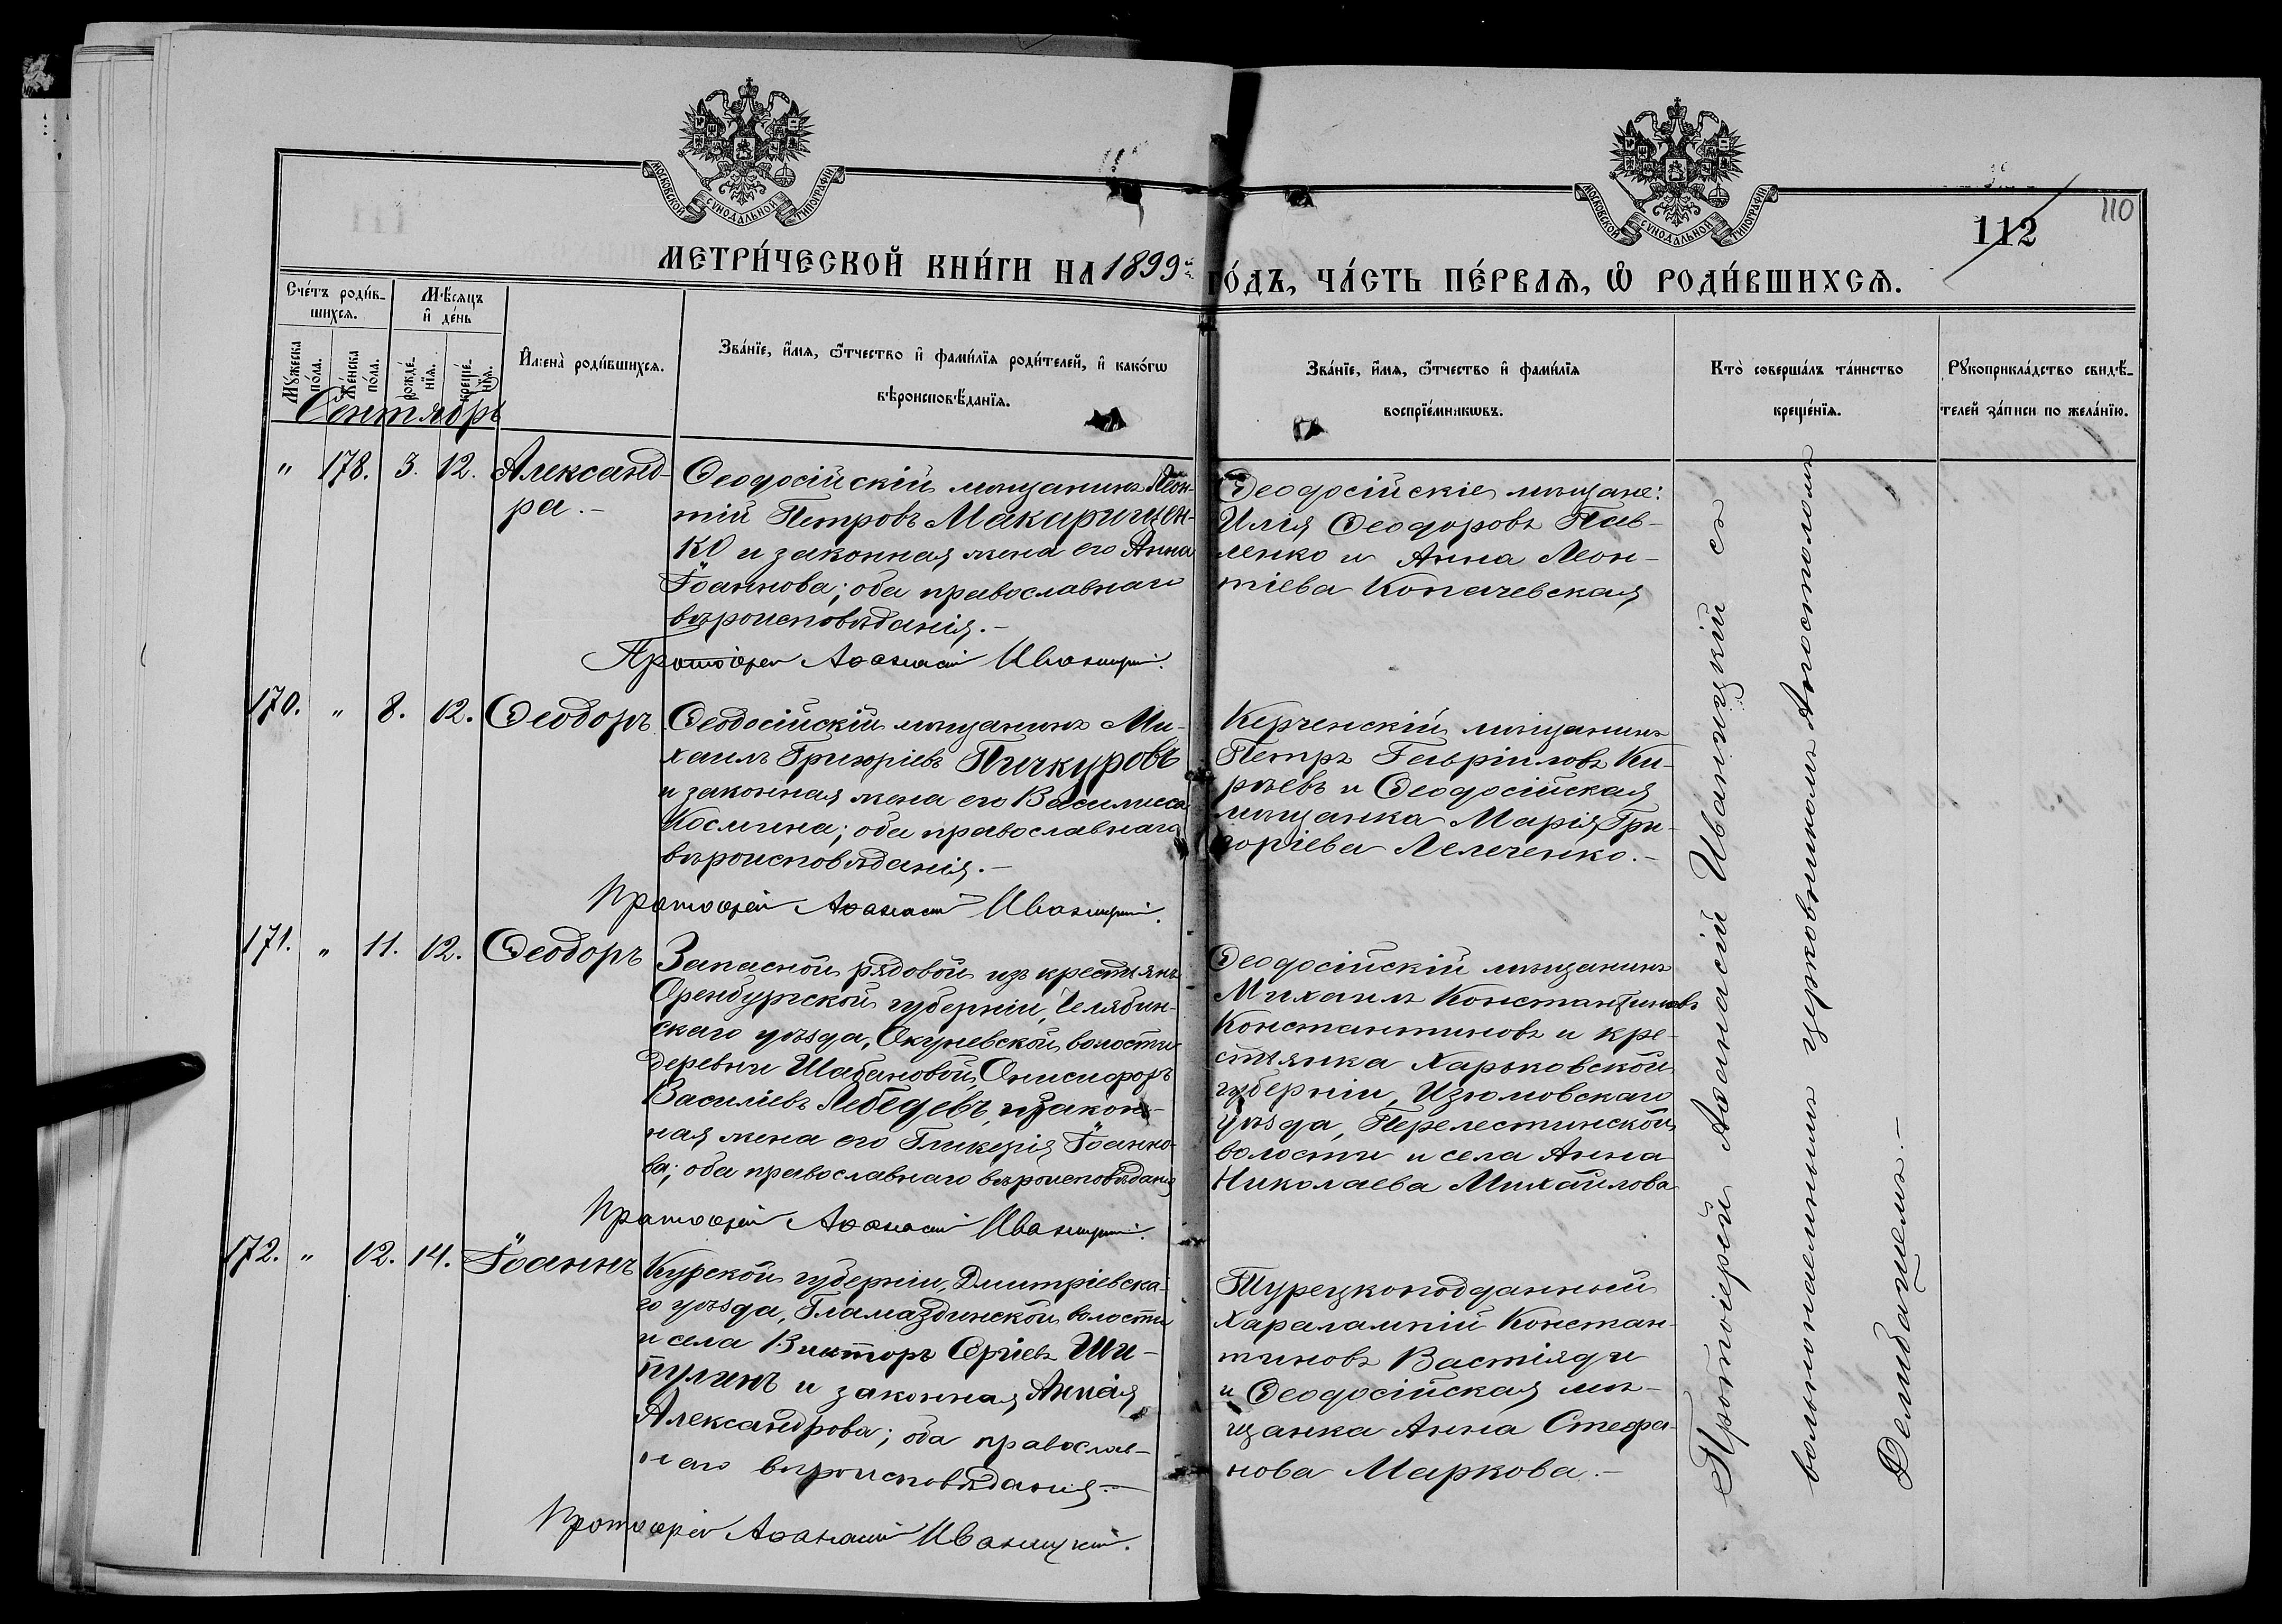 МОСКОВСКОЙ СѴНОДАЛЬНОЙ ТИПОГРАФІИ
МОСКОВСКОЙ СѴНОДАЛЬНОЙ ТИПОГРАФІИ
110
112
МЕТРИ́ЧЕСКОЙ КНИ́ГИ НА 1899й ГО́ДЪ, ЧА́СТЬ ПЕ́РВАѦ, Ѡ҆ РОДИ́ВШИХСѦ.
Сче́тъ роди́в-
шихсѧ.
Мꙋ́жеска по́ла.
Же́нска по́ла.
Мѣ́сѧцъ
и҆ де́нь
рожде́-
нїѧ.
креще́-
нїѧ.
И҆мена̀ роди́вшихсѧ.
Зва́нїе, и҆́мѧ, ѻ҆́тчество и҆ фами́лїѧ роди́телей, и҆ како́гѡ
вѣроисповѣ́данїѧ.
Зва́нїе, и҆́мѧ, ѻ҆́тчество и҆ фами́лїѧ
воспрїе́мникѡвъ.
Кто̀ соверша́лъ та́инство
креще́нїѧ.
Рꙋкоприкла́дство свидѣ́-
телей за́писи по жела́нїю.
Сентябрь
" 178. 3. 12. Александ-
ра.-
Ѳеодосійскій мѣщанинъ Леон-
тій Петровъ Макаригцен-
ко и законная жена его Анна
Іоаннова; оба православнаго
вѣроисповѣданія.-
Протоіерей Аѳанасій Иваницкій.
Ѳеодосійскіе мѣщане:
Илія Ѳеодоровъ Пав-
ленко и Анна Леон-
тіева Копачевская
170. " 8. 12. Ѳеодоръ
Ѳеодосійскій мѣщанинъ Ми-
хаилъ Григоріевъ Пичкуровъ
и законная жена его Василисса
Космина; оба православнаго
вѣроисповѣданія.-
Протоіерей Аѳанасій Иваницкій.
Керченскій мѣщанинъ
Петръ Гавріиловъ Ки-
рѣевъ и Ѳеодосійская
мѣщанка Марія Гри-
горіева Лелеченко.-
171. " 11. 12. Ѳеодоръ
Запасной рядовой изъ крестьянъ
Оренбургской губерніи, Челябин-
скаго уѣзда, Окуневской волости
деревни Шабановой, Онисифоръ
Василіевъ Лебедевъ, и закон-
ная жена его Гликерія Іоанно-
ва; оба православнаго вѣроисповѣданія
Протоіерей Аѳанасій Иваницкій.
Ѳеодосійскій мѣщанинъ
Михаилъ Константиновъ
Константиновъ и кре-
стьянка Харьковской
губерніи, Изюмовскаго
уѣзда, Перелестинской
волости и села Анна
Николаева Михайлова
172. " 12. 14. Іоаннъ
Курской губерніи, Дмитріевска-
го уѣзда, Гламаздинской волости
и села Викторъ Сергіевъ Ши-
пулинъ и законная
Александрова; оба православ-
наго вѣроисповѣданія.-
Протоіерей Аѳанасій Иваницкій.
Турецкоподданный
Харалампій Констан-
тиновъ Вастіяди
и Ѳеодосійская мѣ-
щанка Анна Стефа-
нова Маркова.-
Протоіерей Аѳанасій Иваницкій съ
вольнонаемнымъ церковникомъ Апостоломъ